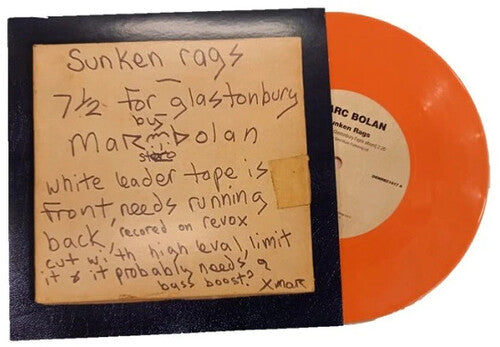 Sunken rags
7½ for glastonbury
by
MARC BOLAN
stereo
white leader tape is
front, needs running
back, recored on revox
cut with high leval limit
it & it probably needs a
bass boost? X marc
ARC BOLAN
unken Rags